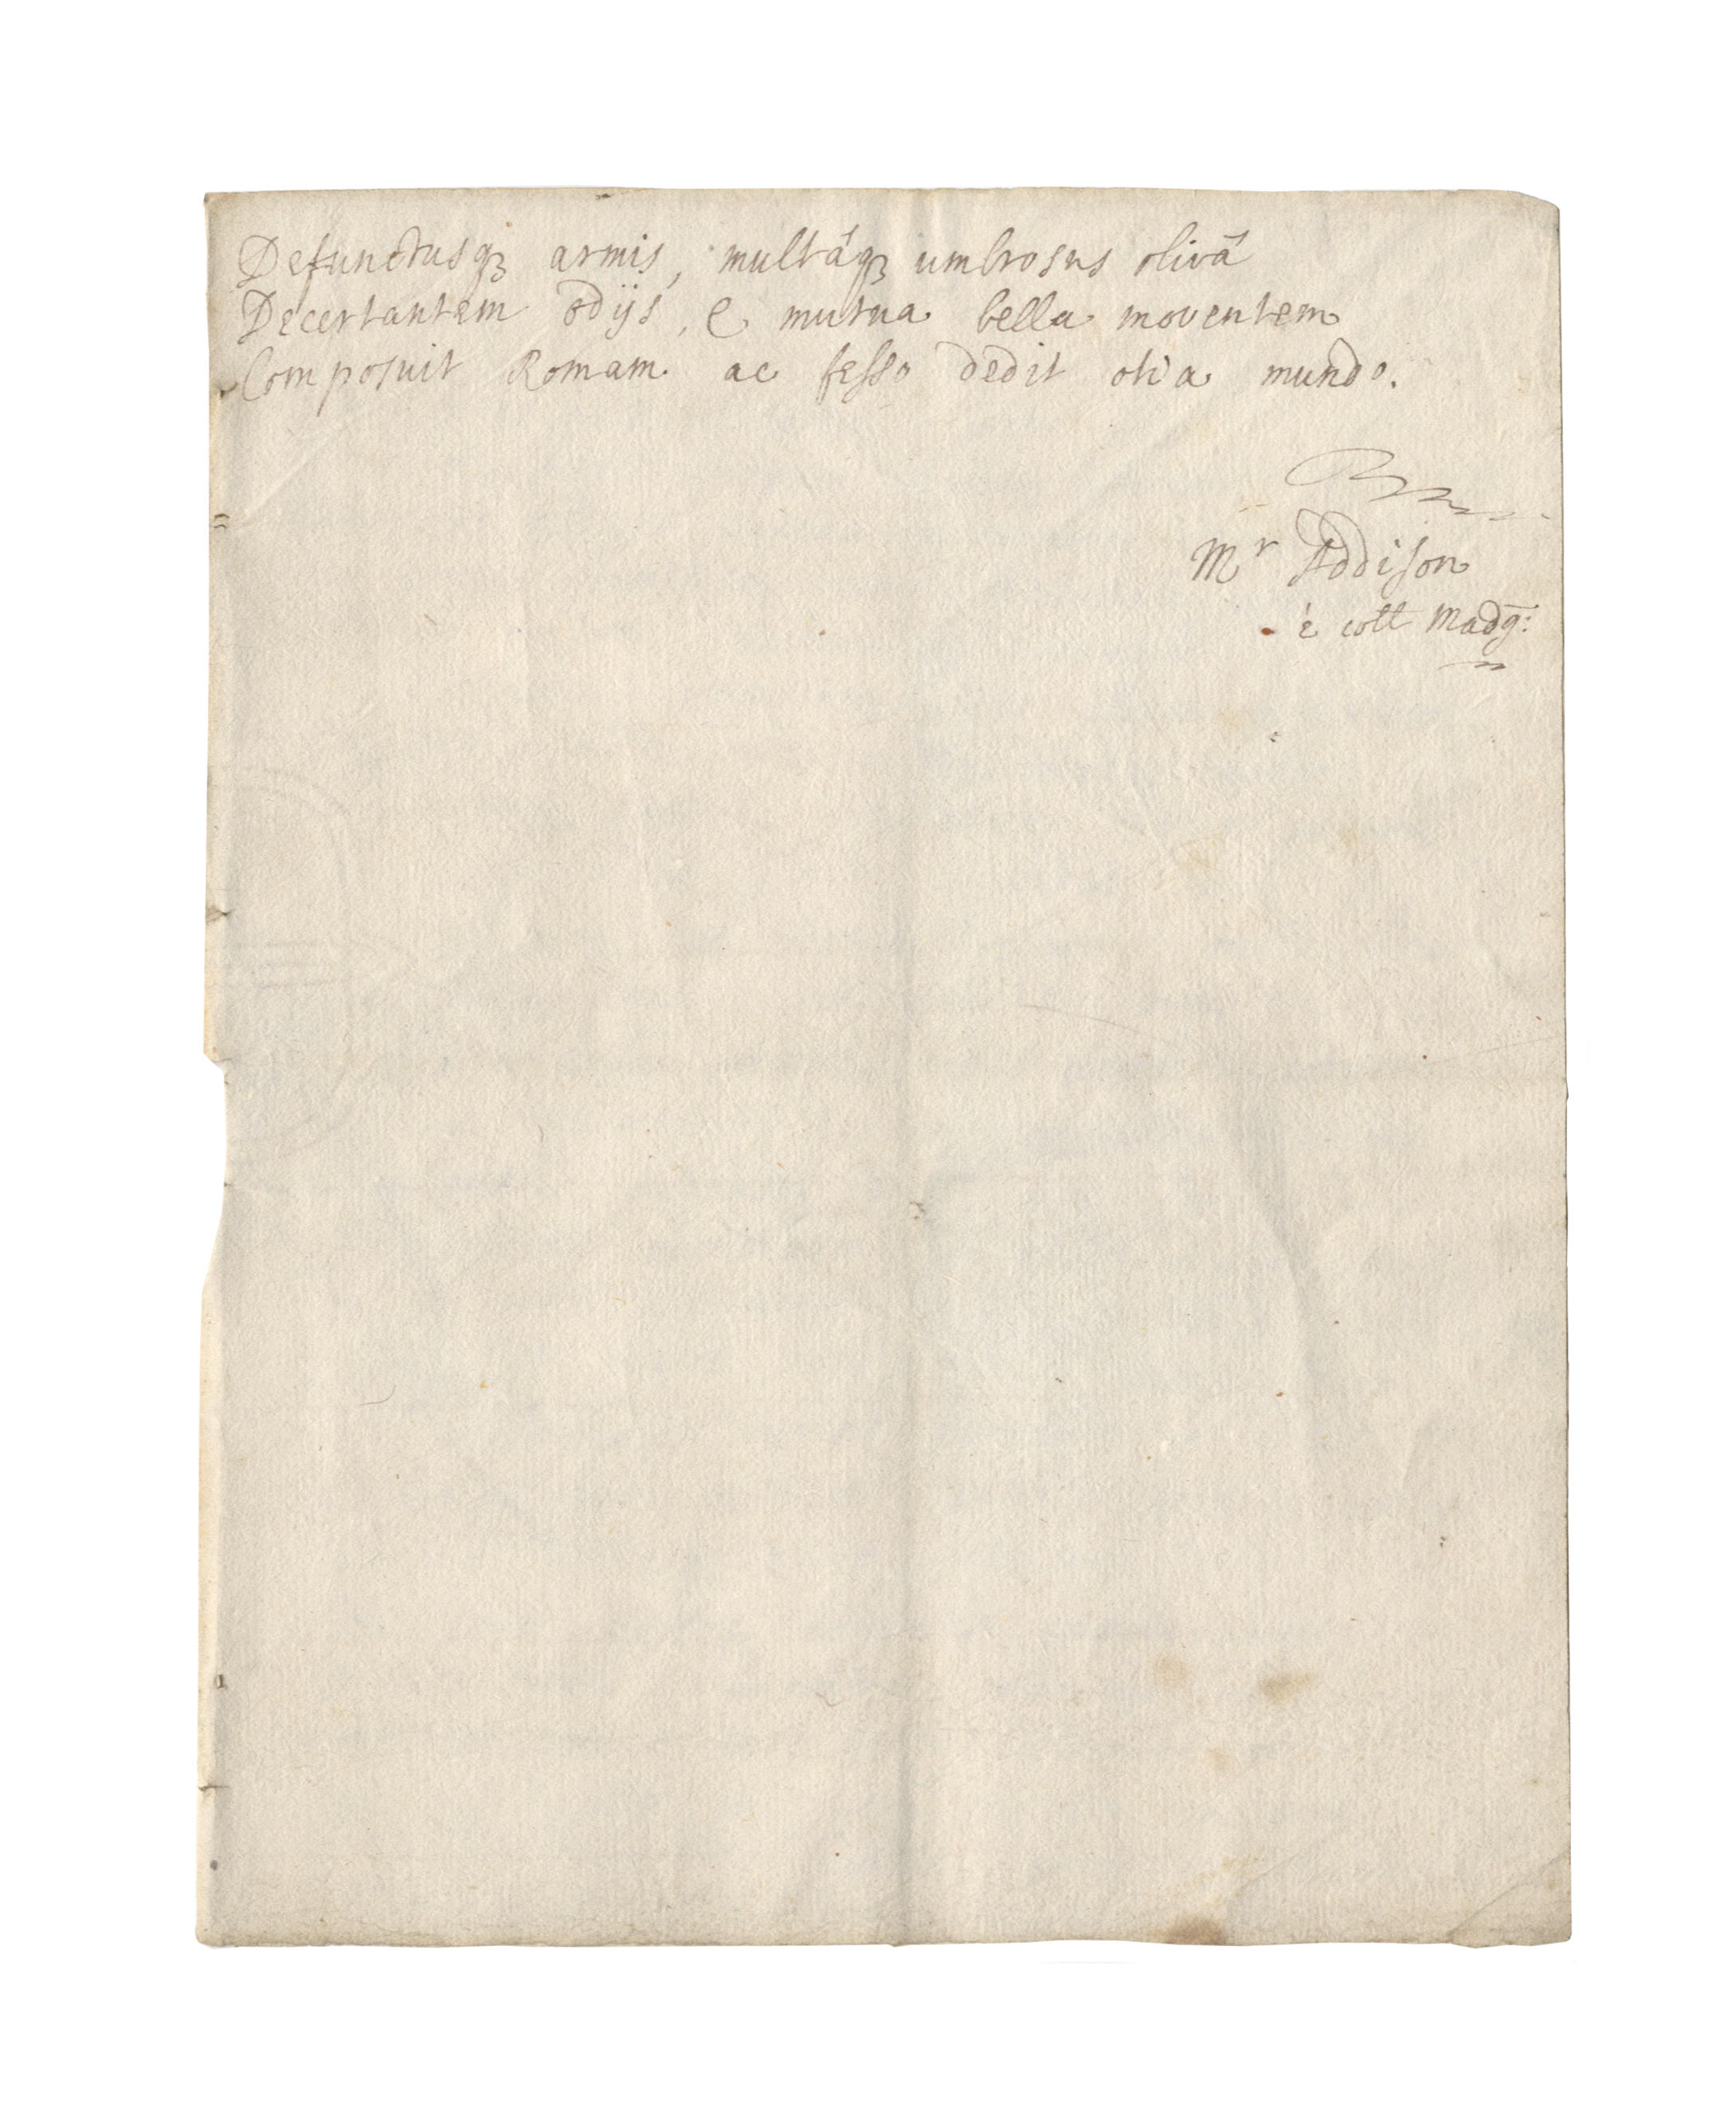 Defunctusqꝫ armis, multáqꝫ umbrosus olivâ
Decertantem odijs, & mutua bella moventem
Composuit Romam ac fesso dedit otia mundo.
Mr Addison
è coll Madg: